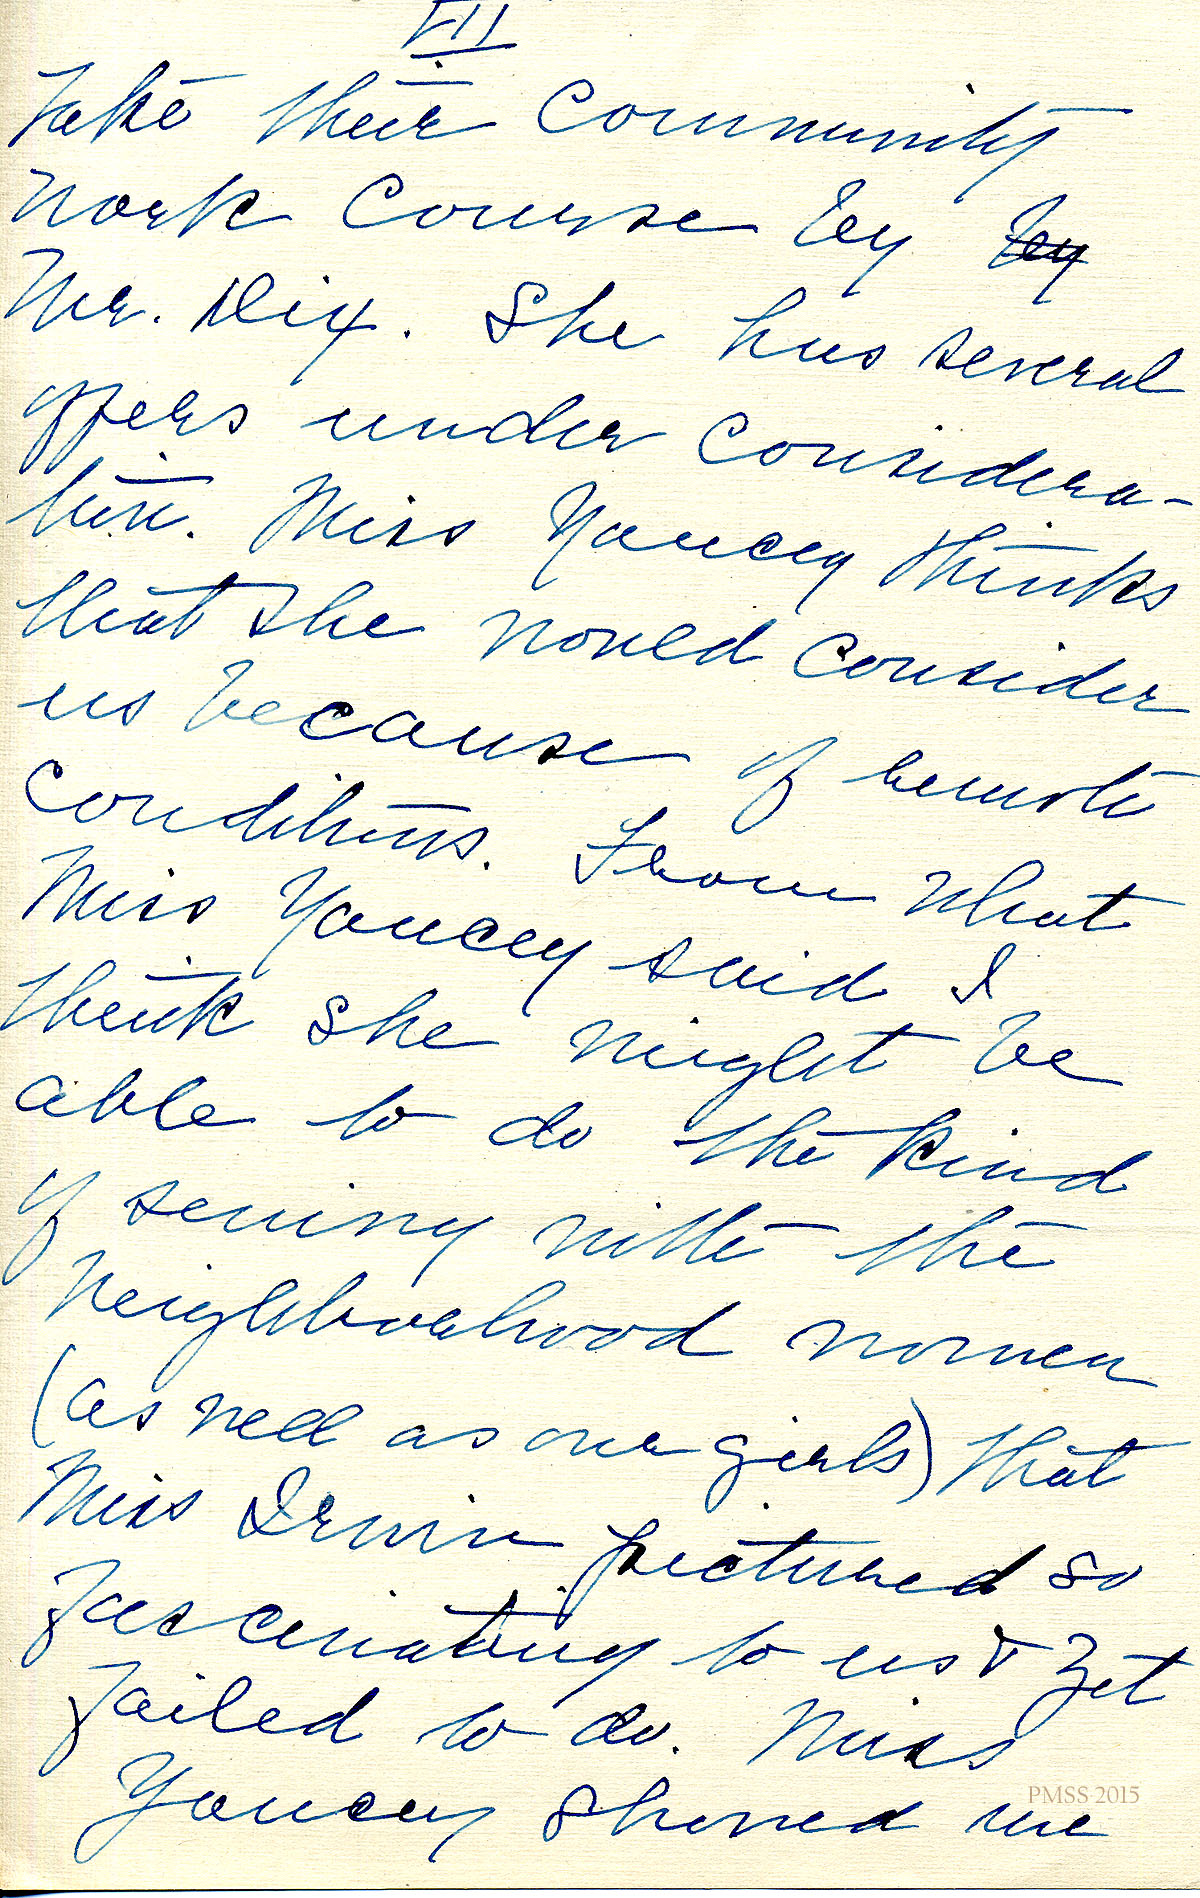 VII
take their Community
work Course by by
Mr. Dix. She has several
offers under considera-
tion. Miss Yancey thinks
that she would consider
us because of remote
conditions. From what
Miss Yancey said I
think she might be
able to do the kind
of sewing with the
neighborhood women
(as well as our girls) that
Miss Irwin pictured so
fascinating to us & yet
failed to do. Miss
Yancey showed me
PMSS 2015